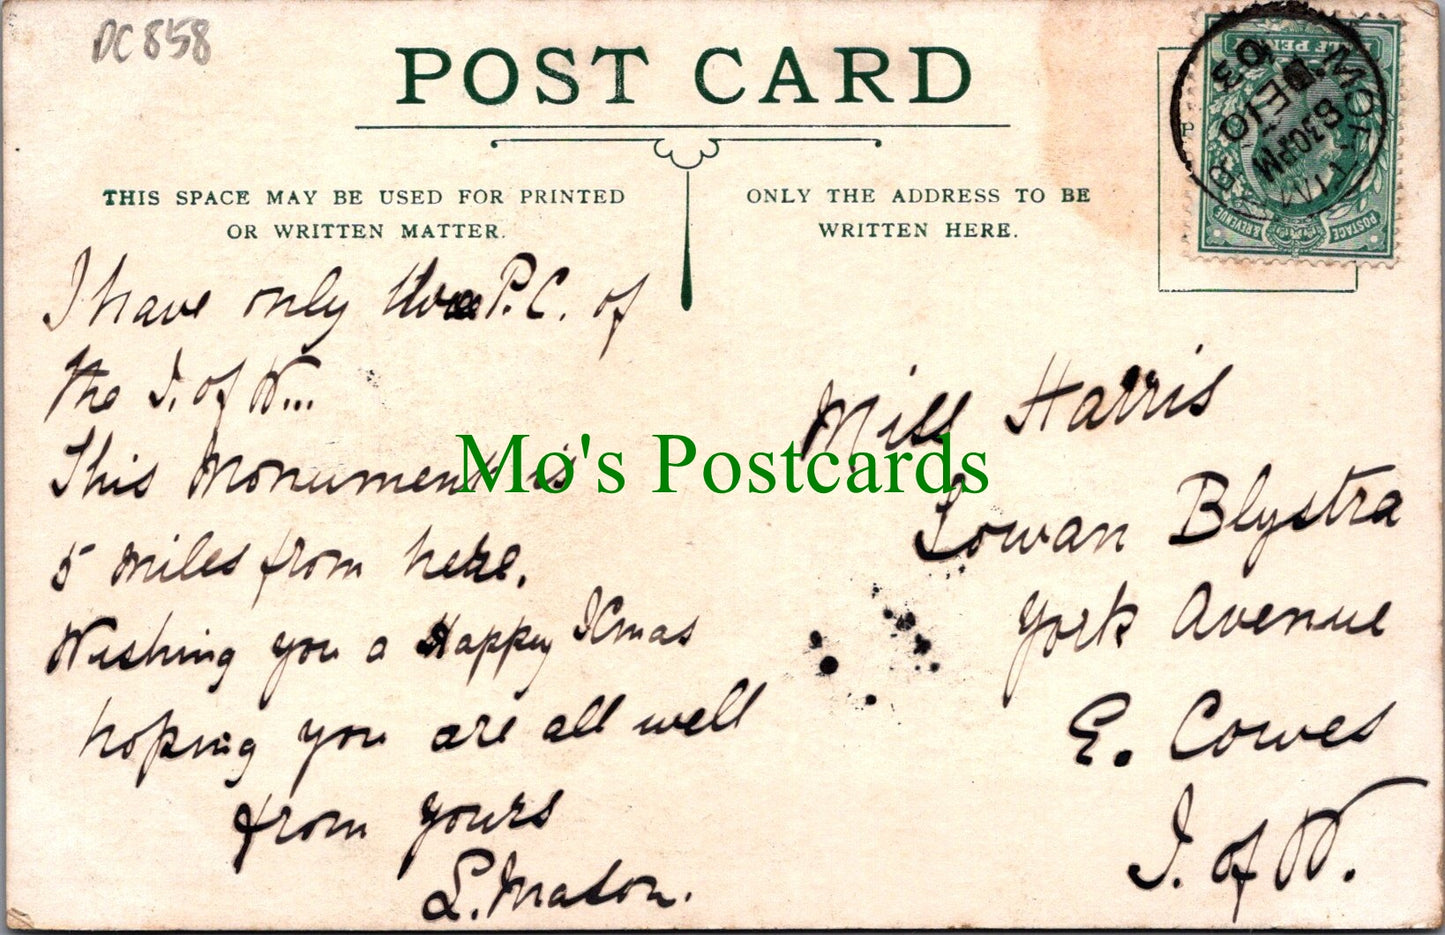 DC 858
POST CARD
THIS SPACE MAY BE USED FOR PRINTED
OR WRITTEN MATTER.
ONLY THE ADDRESS TO BE
WRITTEN HERE.
I have only two P.C. of
the I. of W...
This Monument is
5 miles from here.
Wishing you a Happy Xmas
hoping you are all well
from yours
L. Maton.
Miss Harris
Lowan Blystra
York Avenue
E. Cowes
I. of W.
8 30 PM
DE 10
03
POSTAGE
& REVENUE
Mo's Postcards